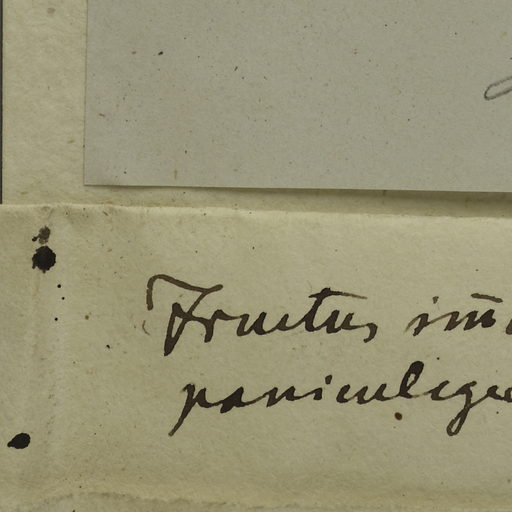 Fructus im̅
paniculige